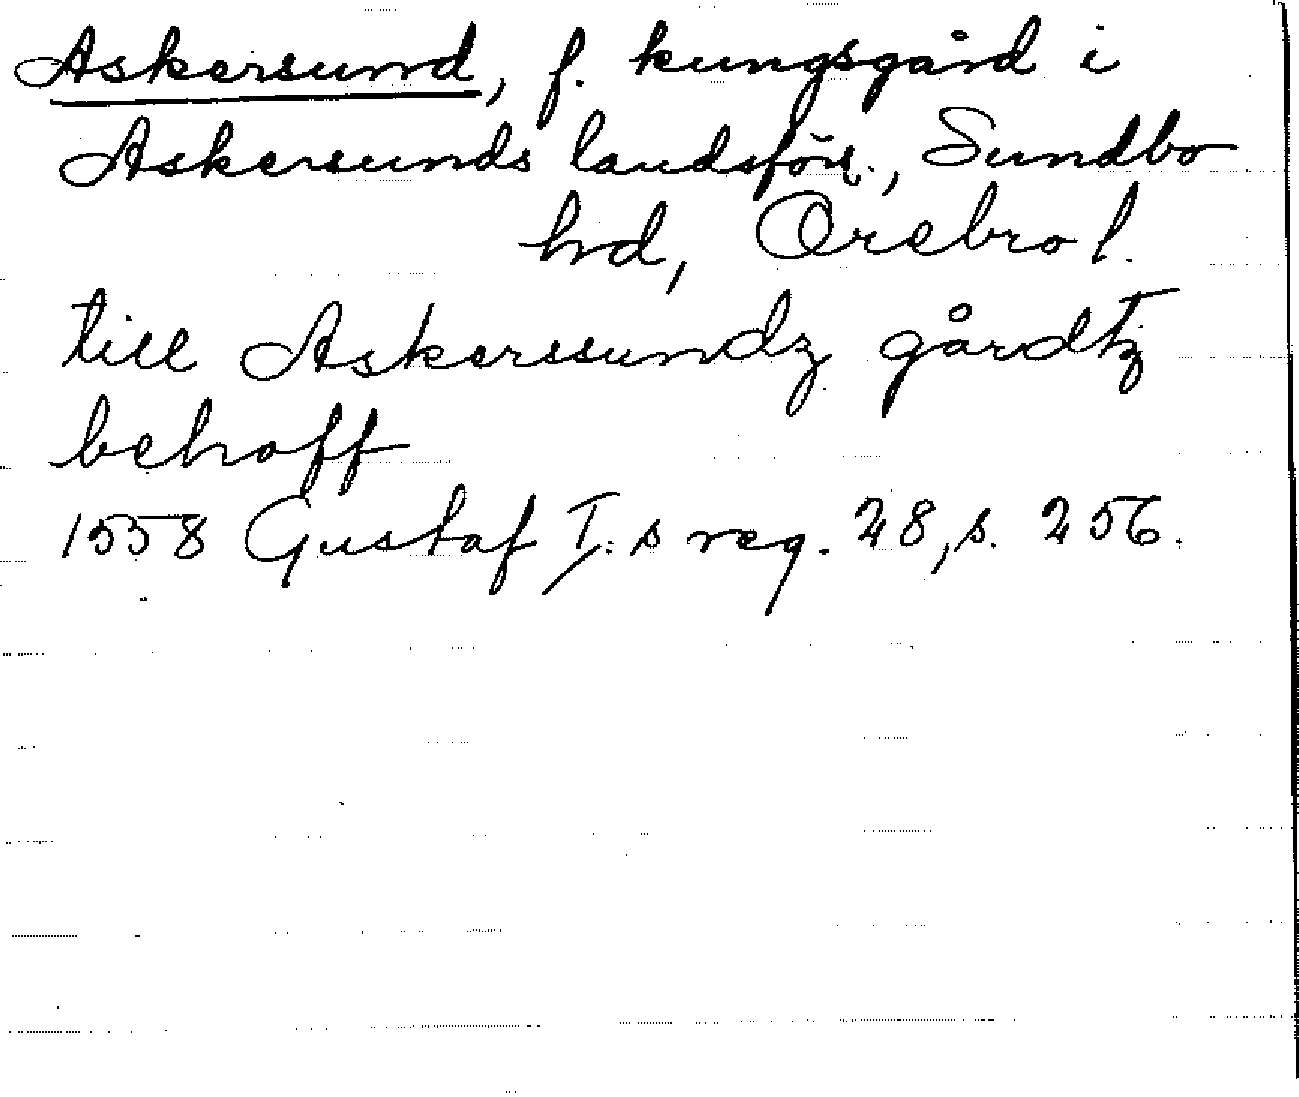 Askersund, f. kungsgård i
Askersunds landsförs., Sundbo
hd, Örebro l.
till Askerssundz gårdtz
behoff
1558 Gustaf I:s reg. 28, s. 256.